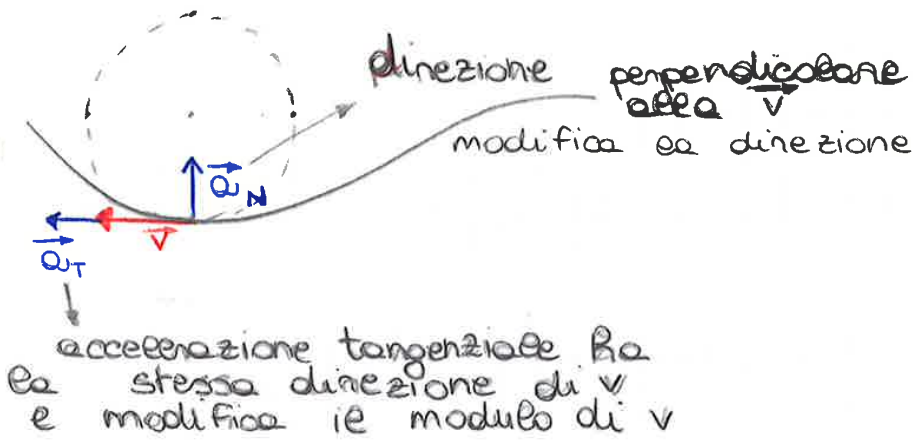 direzione perpendicolare
alla v
modifica la direzione
a N
v
a T
accelerazione tangenziale ha
la stessa direzione di v
e modifica il modulo di v